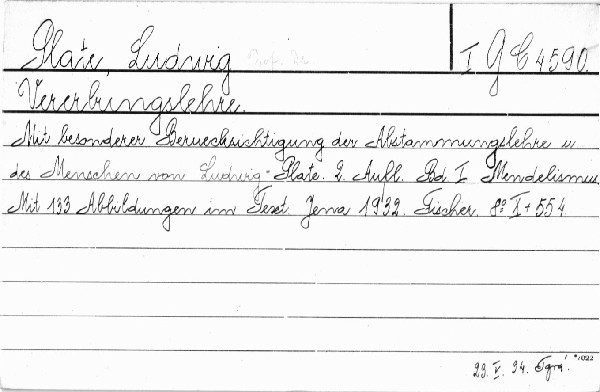 Plate, Ludwig Prof. Dr. I G C 4590.
Vererbungslehre.
Mit besonderer Beruecksichtigung der Abstammungslehre u
des Menschen von Ludwig Plate. 2. Aufl. Bd. I Mendelismus.
Mit 133 Abbildungen im Text. Jena 1932. Fischer. 8° X + 554.
23. V. 34.